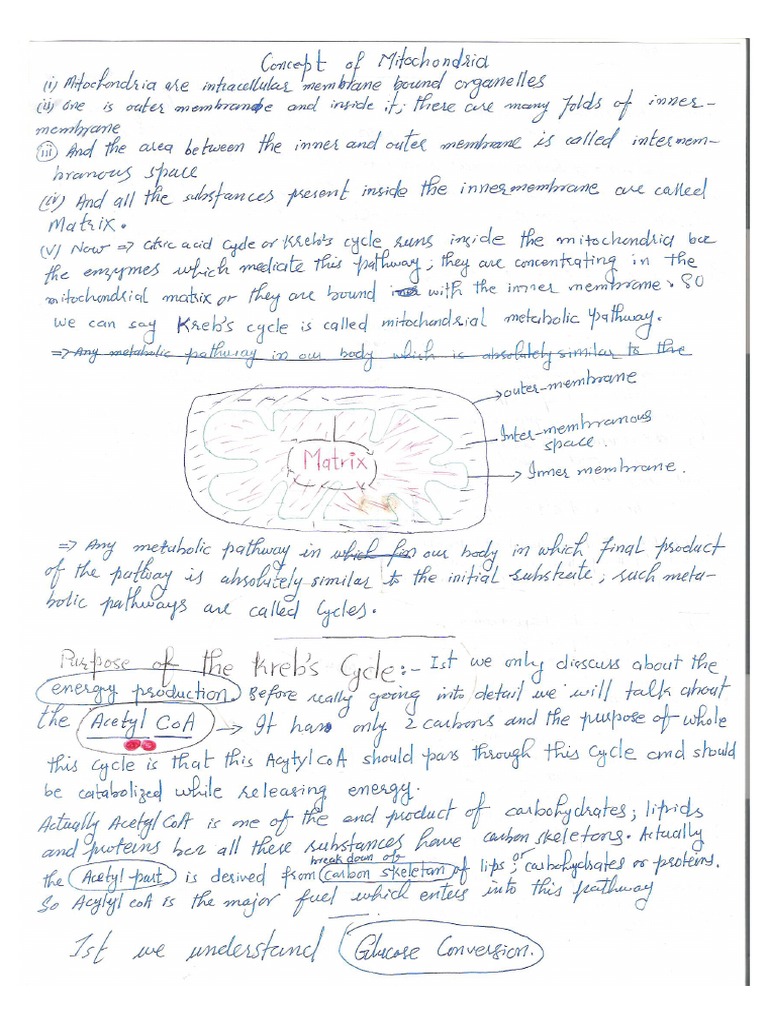 Concept of Mitochondria
(i) Mitochondria are intracellular membrane bound organelles
(ii) one is outer membrane and inside it; there are many folds of inner-
membrane
(iii) And the area between the inner and outer membrane is called intermem-
branous space
(iv) And all the substances present inside the innermembrane are called
Matrix.
(V) Now => citric acid cycle or Kreb's cycle runs inside the mitochondria bcz
the enzymes which mediate this pathway; they are concentrating in the
mitochondrial matrix or they are bound with the inner membrane. So
we can say Kreb's cycle is called mitochondrial metabolic pathway.
=> Any metabolic pathway in our body which is absolutely similar to the
outer-membrane
Inter-membranous
space.
Matrix
Inner membrane.
=> Any metabolic pathway in which fin our body in which final product
of the pathway is absolutely similar to the initial substrate; such meta-
bolic pathways are called Cycles.
Purpose of the Kreb's Cycle:- Ist we only disscuss about the
energy production. Before really going into detail we will talk about
the Acetyl CoA -> It has only 2 carbons and the purpose of whole
this cycle is that this Acytyl CoA should pass through this cycle and should
be catabolized while releasing energy.
Actually Acetyl CoA is one of the end product of carbohydrates; lipids
and proteins bcz all these substances have carbon skeletons. Actually
the Acetyl part is derived from break down of carbon skeletan of lips; or carbohydrates or proteins.
So Acytyl coA is the major fuel which enters into this pathway
Ist we understand Glucose Conversion.